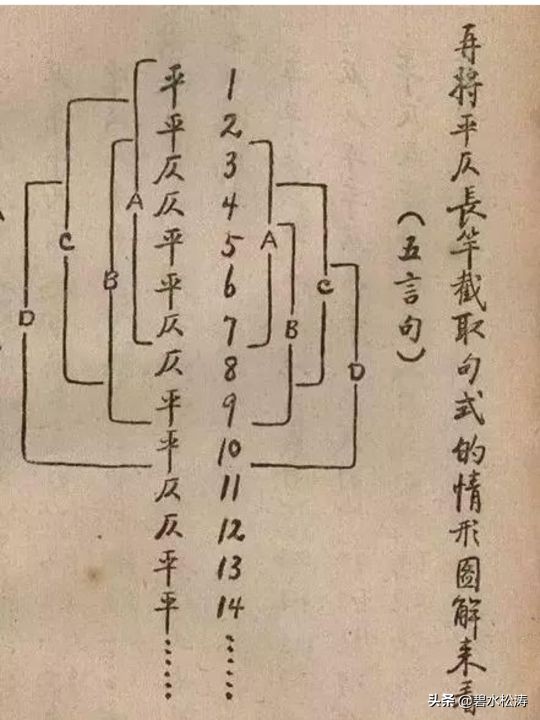 再將平仄長竿截取句式的情形圖解來看
(五言句)
D
C
B
A
1 2 3 4 5 6 7 8 9 10 11 12 13 14 ……
平平仄仄平平仄仄平平仄仄平平……
A
B
C
D
头条 @碧水松涛